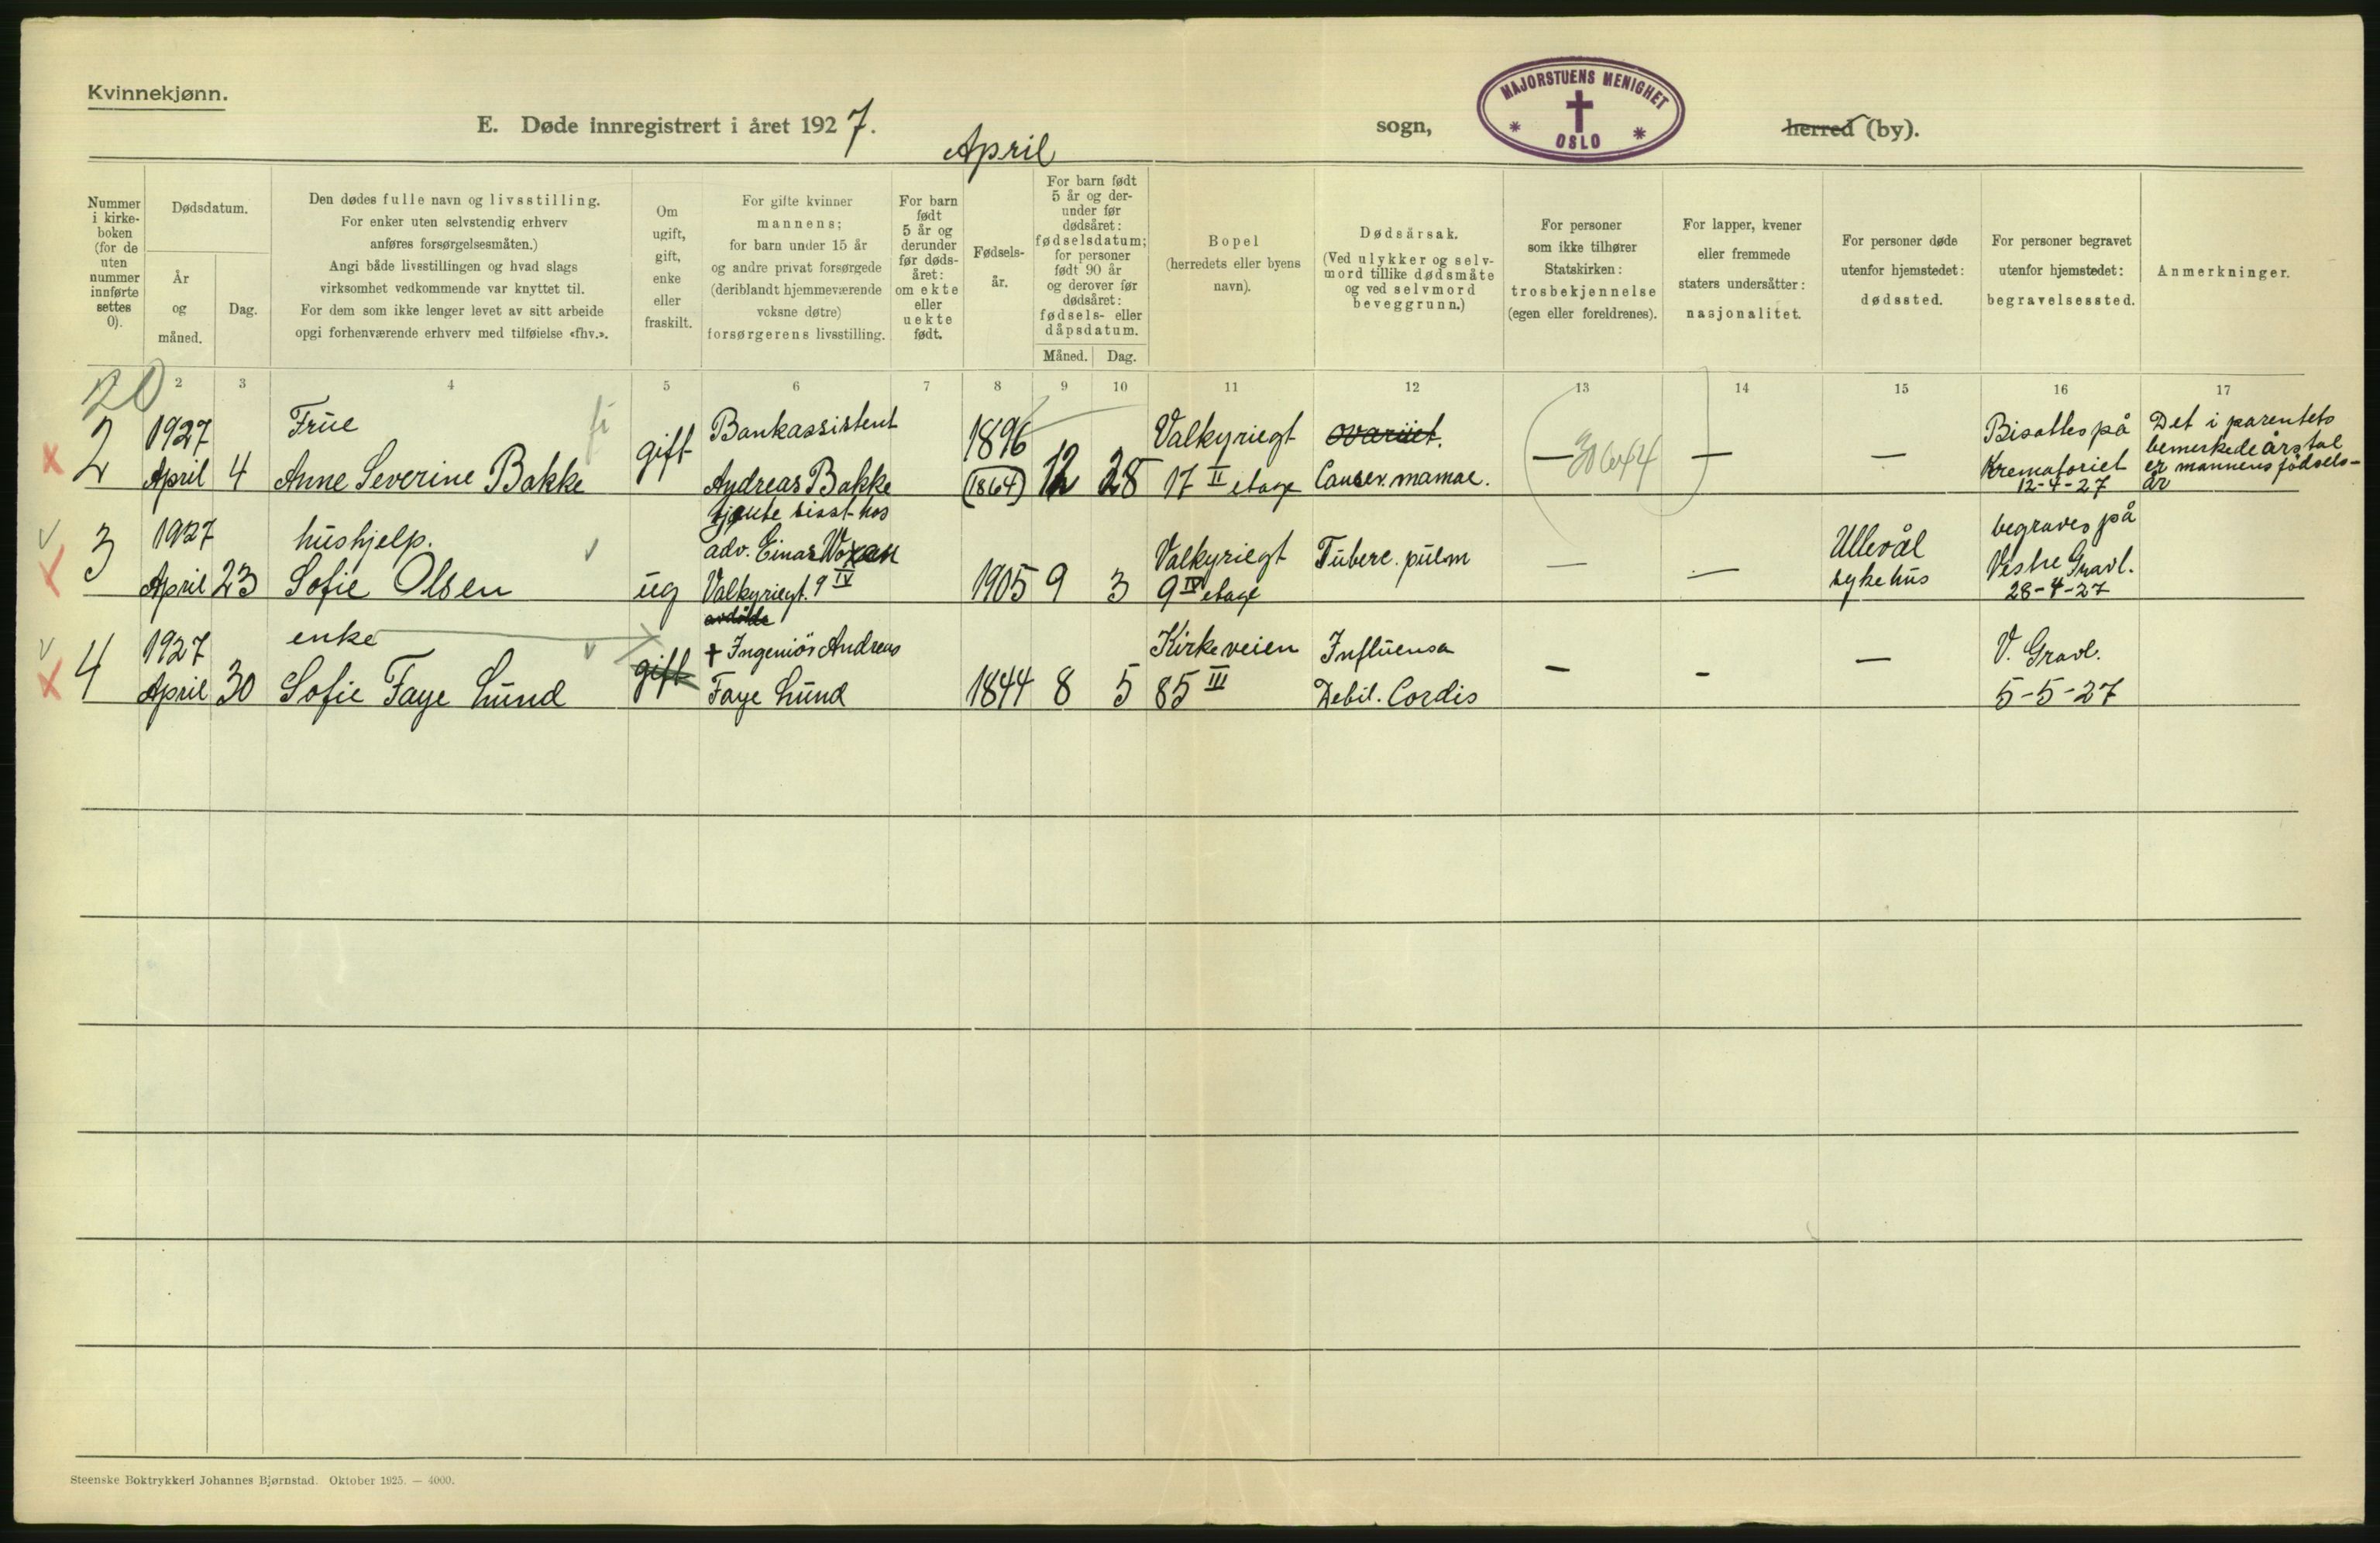 Kvinnekjønn.
E. Døde innregistrert i året 1927.
April
sogn,
MAJORSTUENS MENIGHET
* *
OSLO
herred (by).
Nummer
i kirke-
boken
(for de
uten
nummer
innførte
settes
0).
Dødsdatum.
År
og
måned.
Dag.
Den dødes fulle navn og livsstilling.
For enker uten selvstendig erhverv
anføres forsørgelsesmåten.)
Angi både livsstillingen og hvad slags
virksomhet vedkommende var knyttet til.
For dem som ikke lenger levet av sitt arbeide
opgi forhenværende erhverv med tilføielse «fhv.».
Om
ugift,
gift,
enke
eller
fraskilt.
For gifte kvinner
mannens;
for barn under 15 år
og andre privat forsørgede
(deriblandt hjemmeværende
voksne døtre)
forsørgerens livsstilling.
For barn
født
5 år og
derunder
før døds-
året:
om ekte
eller
uekte
født.
Fødsels-
år.
For barn født
5 år og der-
under før
dødsåret:
fødselsdatum;
for personer
født 90 år
og derover før
dødsåret:
fødsels- eller
dåpsdatum.
Måned. Dag.
Bopel
(herredets eller byens
navn).
Dødsårsak.
(Ved ulykker og selv-
mord tillike dødsmåte
og ved selvmord
beveggrunn.)
For personer
som ikke tilhører
Statskirken:
trosbekjennelse
(egen eller foreldrenes).
For lapper, kvener
eller fremmede
staters undersåtter:
nasjonalitet.
For personer døde
utenfor hjemstedet:
dødssted.
For personer begravet
utenfor hjemstedet:
begravelsessted.
Anmerkninger.
20 2 3 4 5 6 7 8 9 10 11 12 13 14 15 16 17
2
1927
April
4
Frue
Anne Severine Bakke
gift
Bankassistent
Andreas Bakke
1896
(1864)
12
28
Valkyriegt
17 II etage
ovariiet.
Cancer. mamae.
— 30644
—
—
Bisattes på
Krematoriet
12-4-27
Det i parentets
bemerkede årstal
er mannens födsels-
år
3
1927
April
23
hushjelp.
Sofie Olsen
ug
tjente sisst hos
adv. Einar Voxan
Valkyriegt. 9 IV
1905
9
3
Valkyriegt
9 IV etage
Tuberc. pulm
—
—
Ullevål
sykehus
begraves på
Vestre Gravl.
28-4-27
4
1927
April
30
enke
Sofie Faye Lund
gift
avdöde
+ Ingeniör Andreas
Faye Lund
1844
8
5
Kirkeveien
85 III
Influensa
Debil. Cordis
—
-
—
V. Gravl.
5-5-27
Steenske Boktrykkeri Johannes Bjørnstad. Oktober 1925. — 4000.